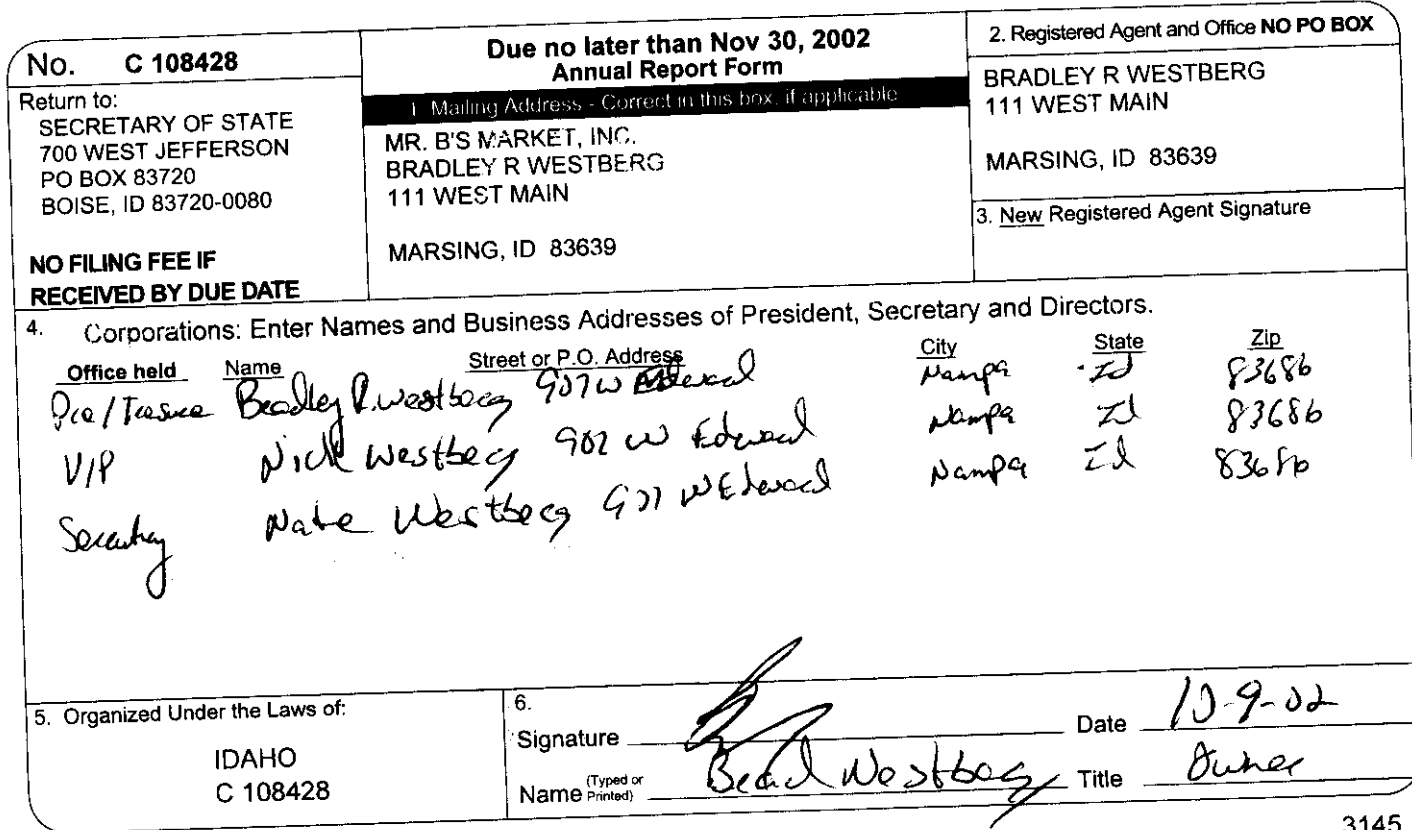 No. C 108428
Return to:
SECRETARY OF STATE
700 WEST JEFFERSON
PO BOX 83720
BOISE, ID 83720-0080
NO FILING FEE IF
RECEIVED BY DUE DATE
Due no later than Nov 30, 2002
Annual Report Form
1. Mailing Address - Correct in this box, if applicable
MR. B'S MARKET, INC.
BRADLEY R WESTBERG
111 WEST MAIN
MARSING, ID 83639
2. Registered Agent and Office NO PO BOX
BRADLEY R WESTBERG
111 WEST MAIN
MARSING, ID 83639
3. New Registered Agent Signature
4. Corporations: Enter Names and Business Addresses of President, Secretary and Directors.
Office held Name Street or P.O. Address City State Zip
Bradley R. Westberg 907 W Nampa Id 83686
V/P Nick Westberg 907 W Edward Nampa Id 83686
Secretary Nate Westberg 907 W Edward Nampa Id 83686
5. Organized Under the Laws of:
IDAHO
C 108428
6.
Signature Date 10-9-02
Name (Typed or Printed) Brad Westberg Title Owner
3145